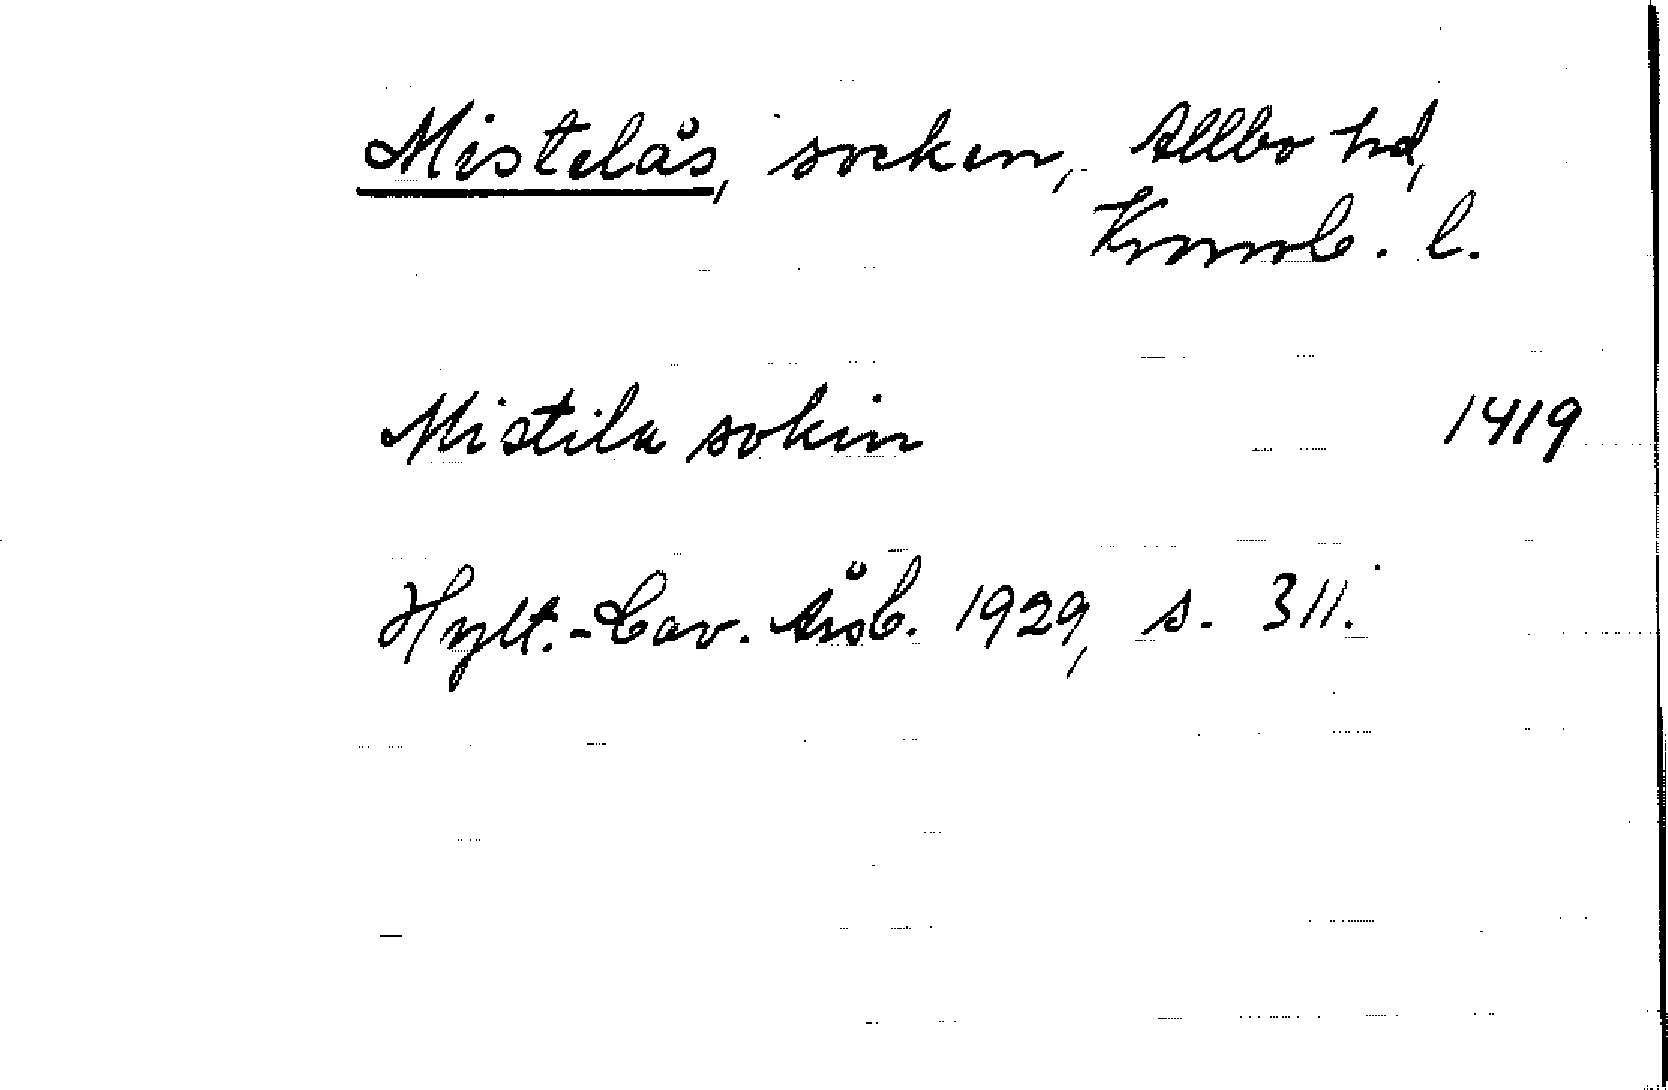 Mistelås, socken, Allbo hd,
Kronob. l.
Mistila sokin 1419
Hylt.-Cav. Årsb. 1929, s. 311.